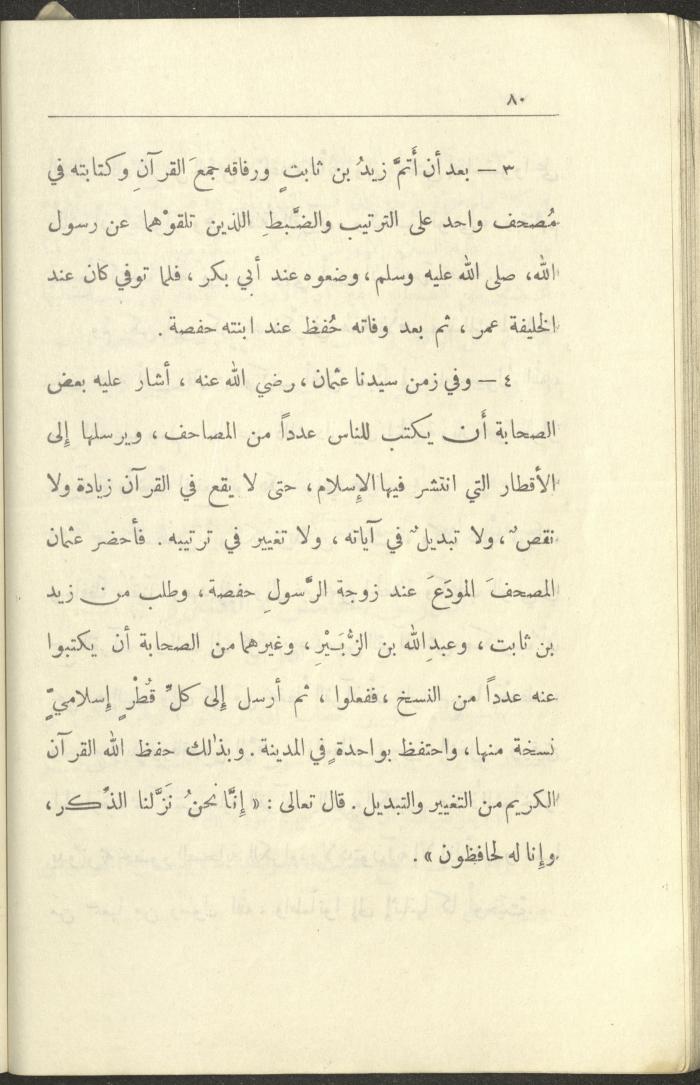 ٨٠
٣ — بعد أن أَتمَّ زيدُ بن ثابتٍ ورفاقه جمعَ القرآنِ وكتابته في
مُصحف واحد على الترتيب والضَّبطِ اللذين تلقوْهما عن رسول
الله، صلى الله عليه وسلم، وضعوه عند أبي بكر، فلما توفي كان عند
الخليفة عمر، ثم بعد وفاته حُفظ عند ابنته حفصة.
٤ — وفي زمن سيدنا عثمان، رضي الله عنه، أشار عليه بعض
الصحابة أَن يكتب للناس عدداً من المصاحف، ويرسلها إِلى
الأقطار التي انتشر فيها الإِسلام، حتى لا يقع في القرآن زيادة ولا
نقصٌ، ولا تبديلٌ في آياته، ولا تغيير في ترتيبه. فأحضر عثمان
المصحفَ المودَعَ عند زوجة الرَّسولِ حفصة، وطلب من زيد
بن ثابت، وعبدِالله بن الزُّبَيْرِ، وغيرهما من الصحابة أن يكتبوا
عنه عدداً من النسخ، ففعلوا، ثم أرسل إِلى كلِّ قُطْرٍ إِسلاميٍّ
نسخة منها، واحتفظ بواحدةٍ في المدينة. وبذلك حفظ الله القرآن
الكريم من التغيير والتبديل. قال تعالى: « إِنَّا نحنُ نَزَّلنا الذِّكر،
وإِنا له لحافظون ».